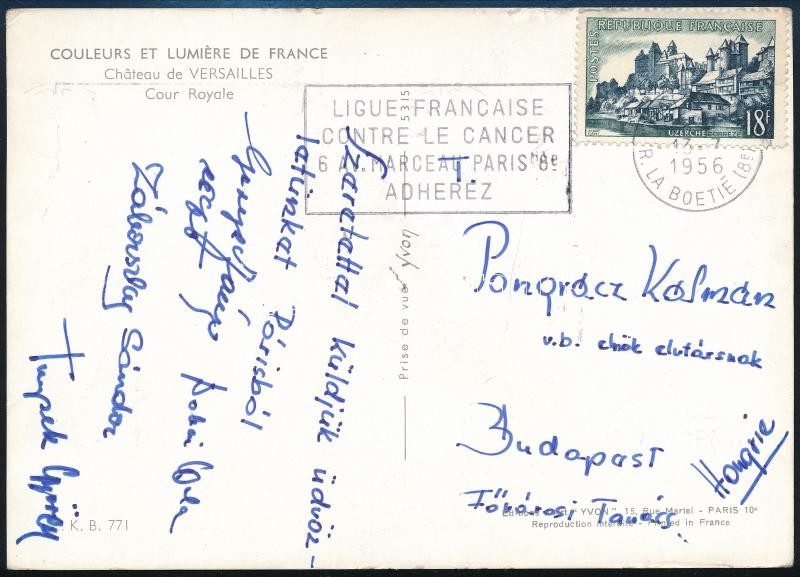 COULEURS ET LUMIÈRE DE FRANCE
Château de VERSAILLES
Cour Royale
POSTES RÉPUBLIQUE FRANÇAISE
UZERCHE-CORRÈZE
18F
LIGUE FRANCAISE
CONTRE LE CANCER
6 AV. MARCEAU PARIS 8e
ADHEREZ
T.
1956
R. LA BOETIE (8e)
5315
Prise de vue YVON
Szeretettel küldjük üdvöz-
letünket Párisból
Záborszky Sándor
György
Pongrácz Kálmán
v.b. elnök elvtársnak
Budapest
Fővárosi Tanács
Hongrie
K. B. 771
"YVON" 15, Rue Martel - PARIS 10e
Reproduction interdite - Printed in France